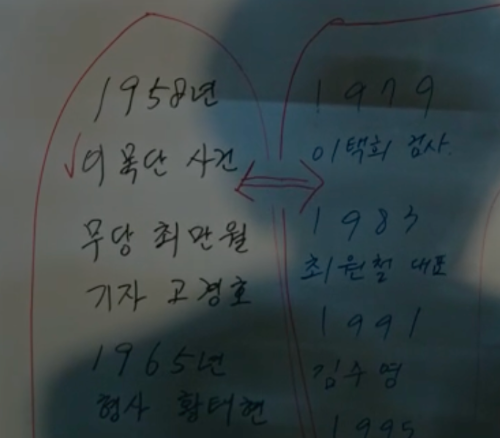 1958년
이목단 사건
무당 최만월
기자 고경호
1965년
형사 황태현
1979
이택희 검사.
1983
최원철 대표
1991
김수영
1995